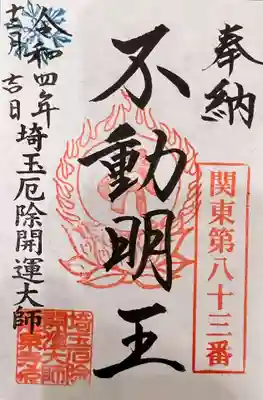 奉納
関東第八十三番
不動明王
令和四年
十二月
吉日
埼玉厄除開運大師
埼玉厄除
開運大師